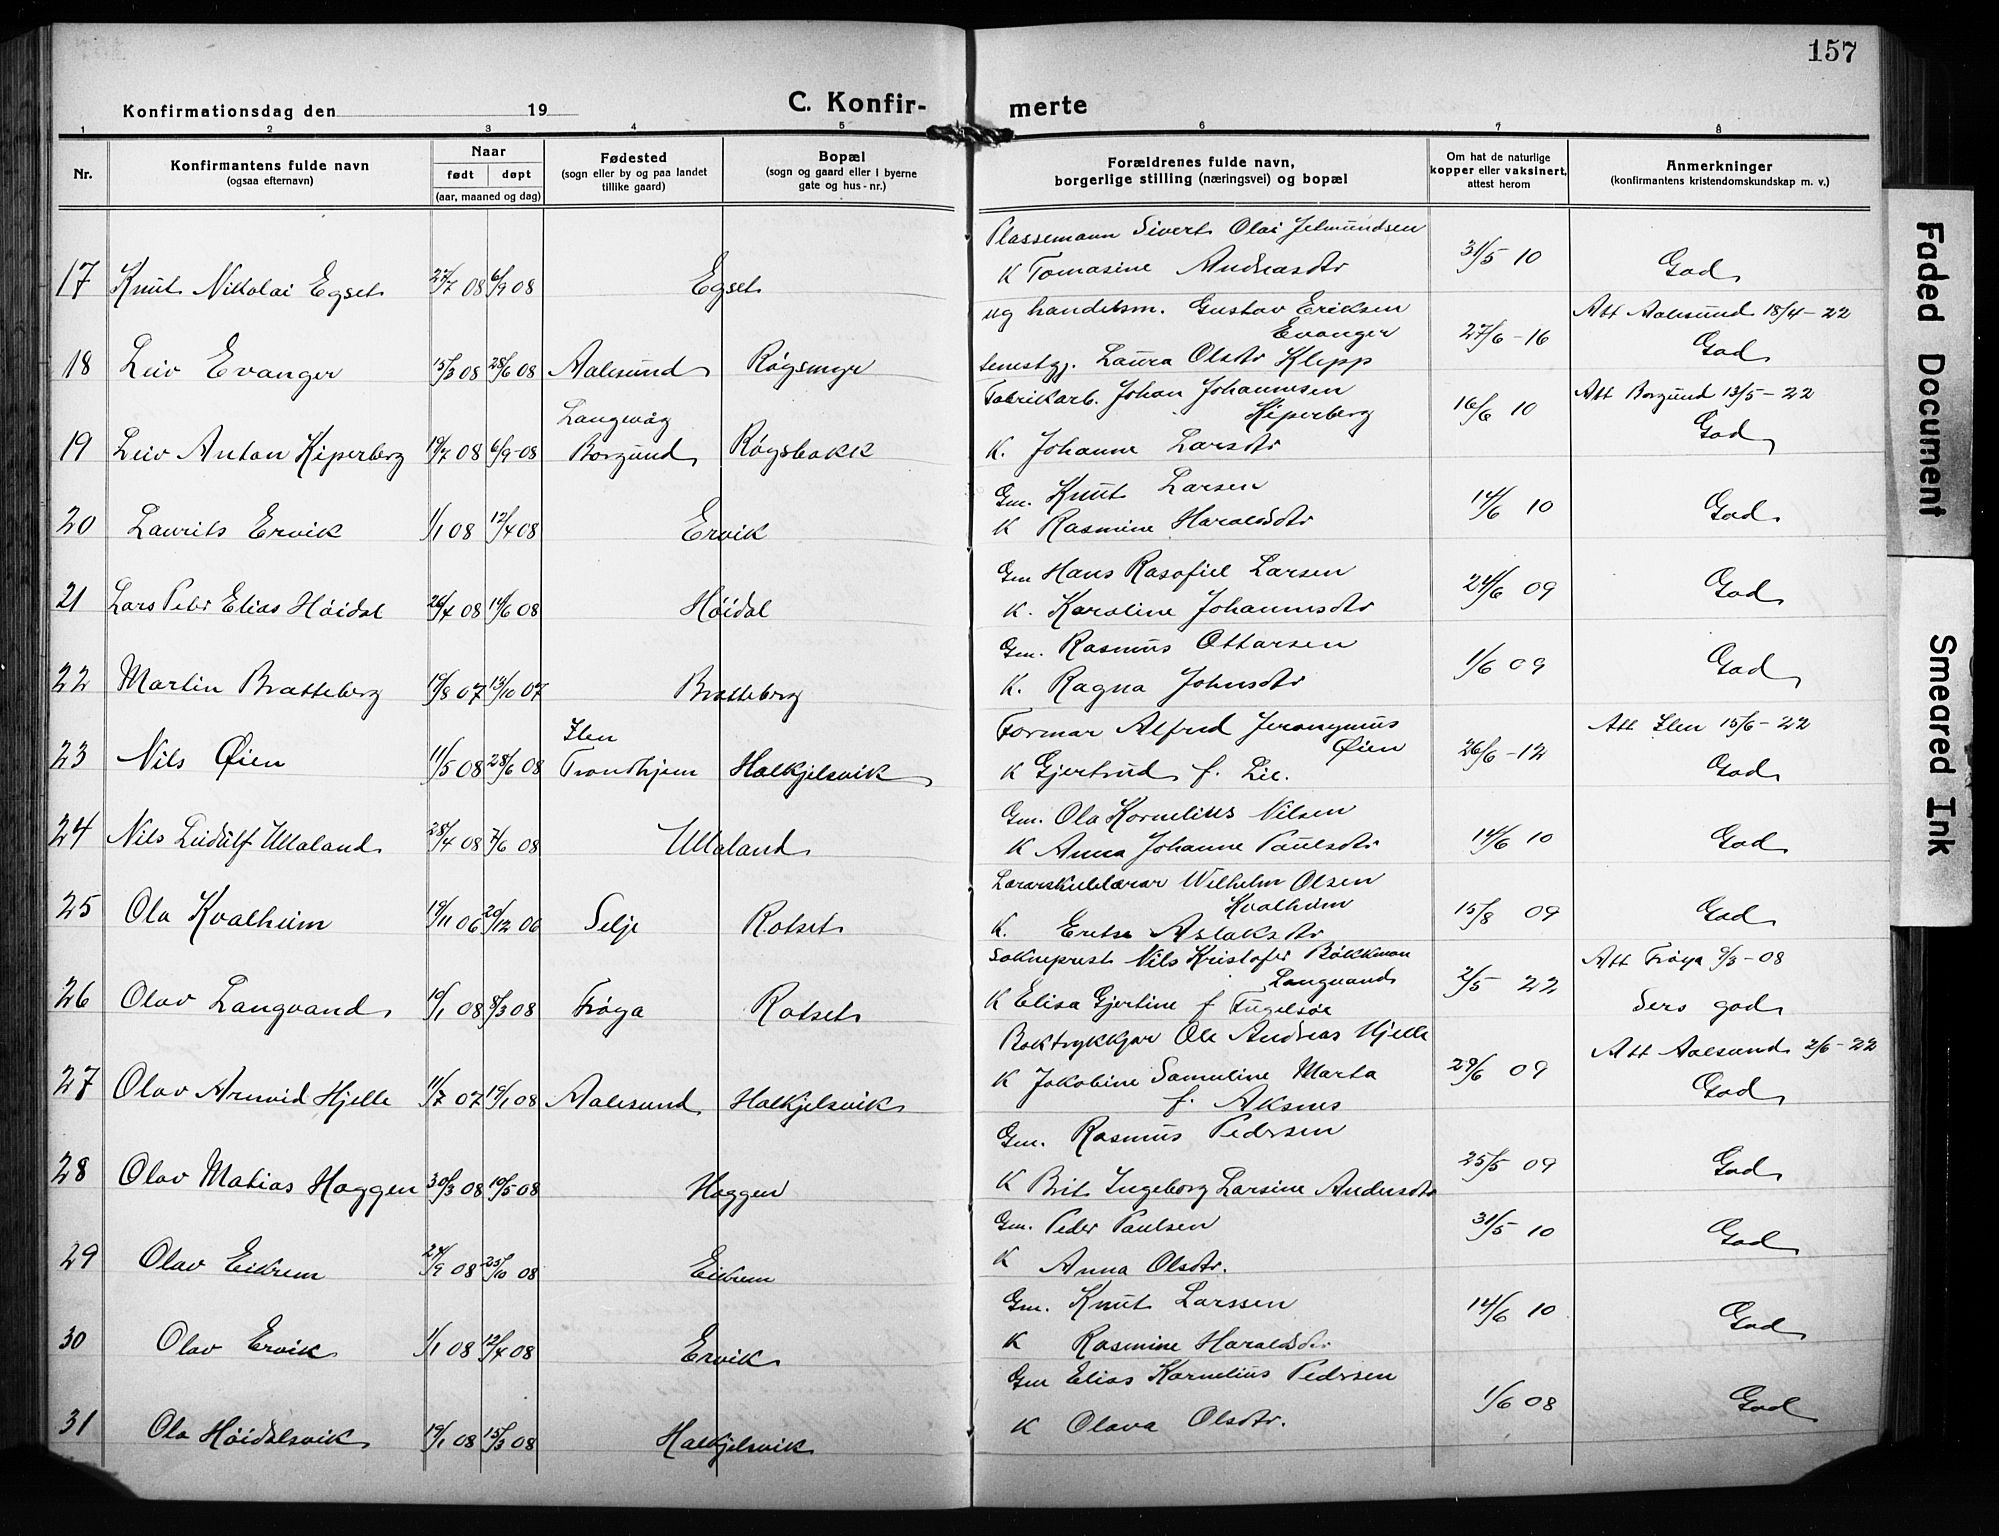 157
C. Konfir-
merte
Konfirmationsdag den 19
1 2 3 4 5 6 7 8
Nr.
Konfirmantens fulde navn
(ogsaa efternavn)
Naar
født døpt
(aar, maaned og dag)
Fødested
(sogn eller by og paa landet
tillike gaard)
Bopæl
(sogn og gaard eller i byerne
gate og hus-nr.)
Forældrenes fulde navn,
borgerlige stilling (næringsvei) og bopæl
Om hat de naturlige
kopper eller vaksinert,
attest herom
Anmerkninger
(konfirmantens kristendomskundskap m. v.)
Plassemann Sivert Olai Jetmundsen
17 Knut Nikolai Egset 27/7 08 6/9 08 Egset K Tomasine Andreasdtr 31/5 10 God
ug handelsm. Gustav Eriksen Att Aalesund 18/4-22
Evanger
18 Leiv Evanger 15/3 08 28/6 08 Aalesund Røgsmyr Laura Olsdtr Klepp 27/6-16 God
Fabrikarb. Johan Johannesen Att Borgund 13/5-22
Langevåg Kiperberg
19 Leiv Anton Kiperberg 19/7 08 6/9-08 Borgund Røgsbakk K. Johanne Larsdtr 16/6 10 God
Gm. Knut Larsen
20 Laurits Ervik 1/1 08 12/4 08 Ervik K Rasmine Haraldsdtr 14/6 10 God
Gm Hans Rasofiel Larsen
21 Lars Peter Elias Høidal 26/4 08 14/6 08 Høidal K. Karoline Johannesdtr 24/6 09 God
Gm. Rasmus Ottarsen
22 Martin Bratteberg 19/8 07 13/10 07 Bratteberg K. Ragna Johnsdtr 1/6 09 God
Formar Alfred Jeronymus Att Ilen 15/6-22
Ilen Øien
23 Nils Øien 11/5 08 28/6 08 Trondhjem Halkjelsvik K Gjertrud f. Lie. 26/6-12 God
Gm. Ola Kornelius Nilsen
24 Nils Leidulf Ullaland 28/4 08 7/6 08 Ullaland K Anna Johanne Paulsdtr 14/6 10 God
Lærarskulelærar Wilhelm Olsen
Kvalheim
25 Ola Kvalheim 19/11 06 26/12 06 Selje Rotset K. Aslaksdtr 15/8 09 God
Sokneprest Nils Kristofer Bøkkman Att Frøya 9/3-08
Langvand
26 Olav Langvand 10/1 08 8/3 08 Frøya Rotset K Elisa Gjertine f Fugelsøe 2/5 22 Sers god
Boktrykkjar Ole Andreas Hjelle Att Aalesund 2/6-22
27 Olav Arnvid Hjelle 11/7 07 19/1 08 Aalesund Halkjelsvik K Jakobine Samuline Marta 29/6 09 God
f. Aksnes
Gm. Rasmus Pedersen
28 Olav Matias Haggen 30/3 08 10/5 08 Haggen K Brit Ingeborg Larsine Andersdtr 25/5 09 God
Gm. Peder Paulsen
29 Olav Eikrem 24/9 08 25/10 08 Eikrem K Anna Olsdtr. 31/5 10 God
Gm. Knut Larssen
30 Olav Ervik 1/1 08 12/4 08 Ervik K Rasmine Haraldsdtr 14/6 10 God
Gm Elias Kornelius Pedersen
31 Ola Høidalsvik 19/1 08 15/3 08 Halkjelsvik K Olava Olsdtr. 1/6 08 God
Faded Document
Smeared Ink